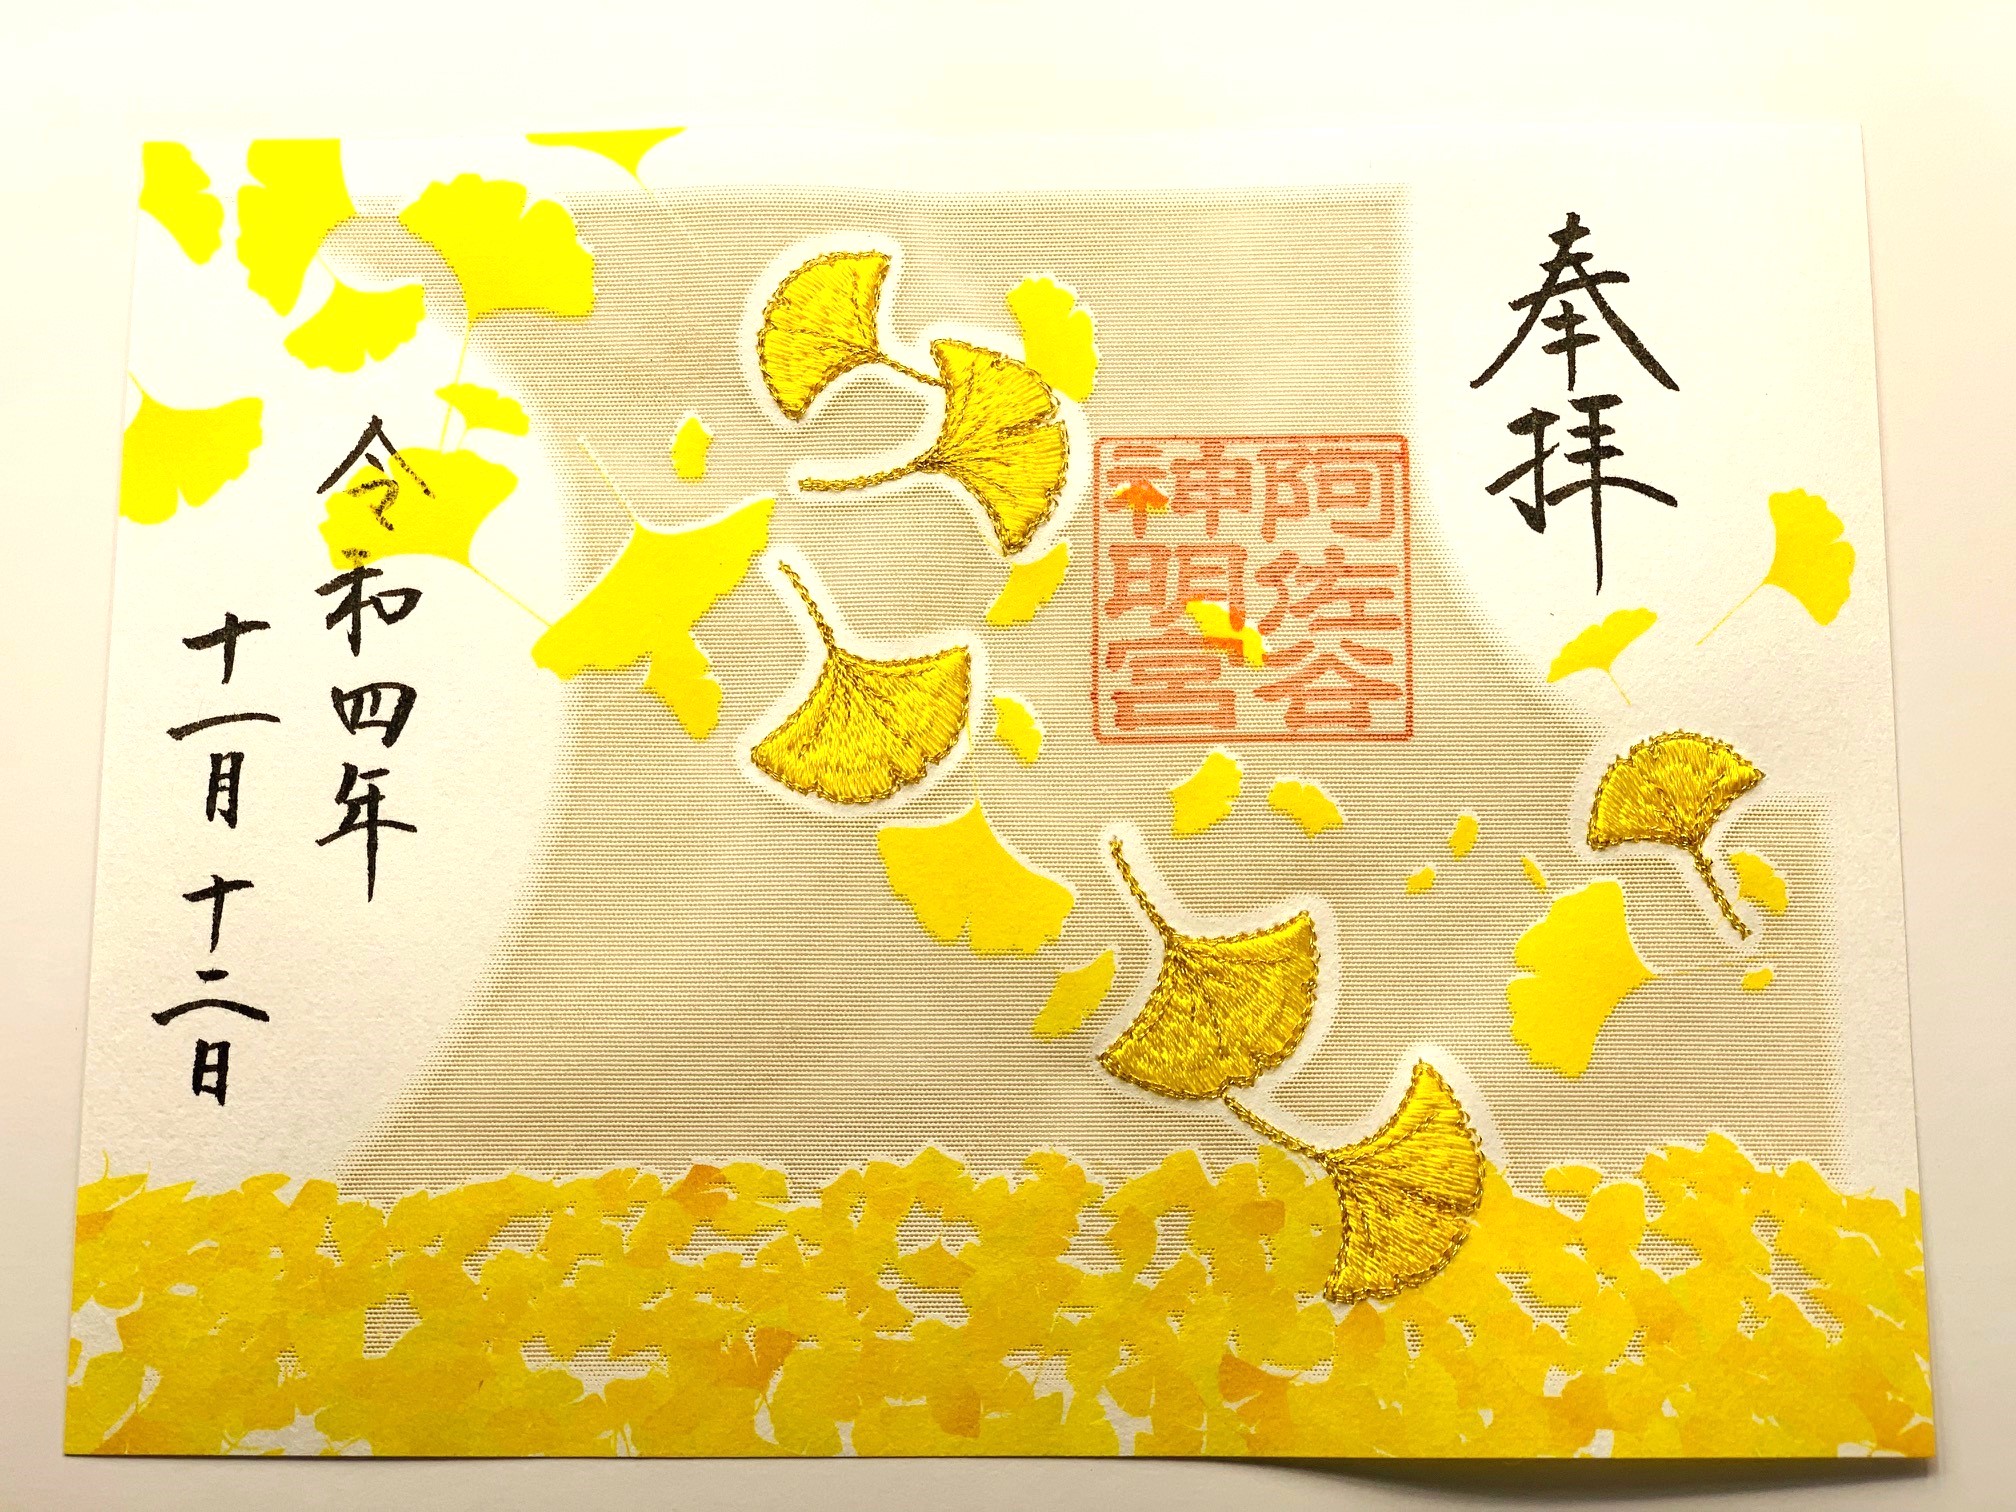 奉拝
阿佐谷
神明宮
令和四年
十一月十二日